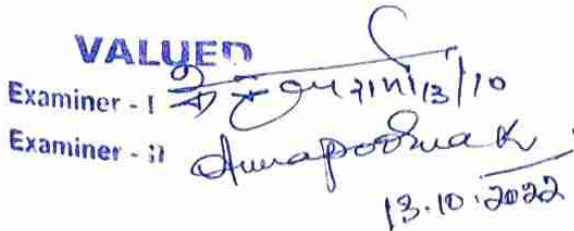 VALUED
Examiner - I 13/10
Examiner - II Annapoorna K
13.10.2022